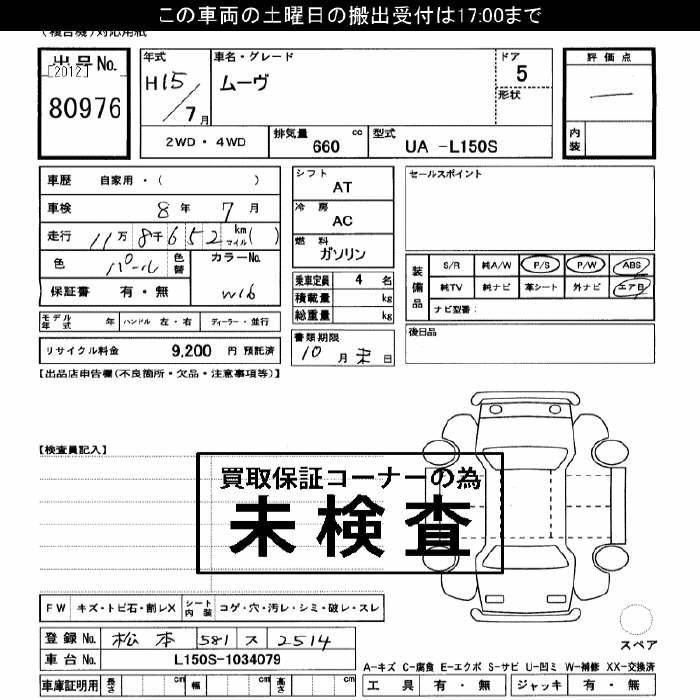 この車両の土曜日の搬出受付は17:00まで
(複合機)対応用紙
出品No.
[2012]
80976
年式
H15/7月
車名・グレード
ムーヴ
ドア
5
形状
評価点
—
内装
2WD・4WD
排気量 660 cc
型式 UA -L150S
車歴 自家用・( )
車検 8年 7月
走行 11万8千652 km マイル( )
色 パール
色替
カラーNo.
W16
保証書 有・無
モデル年式 年 ハンドル 左・右 ディーラー・並行
リサイクル料金 9,200 円 預託済
シフト
AT
冷房
AC
燃料
ガソリン
乗車定員 4 名
積載量 kg
総重量 kg
書類期限
10月末日
セールスポイント
装備品
S/R 純A/W P/S P/W ABS
純TV 純ナビ 革シート 外ナビ エアB
ナビ型番:
後日品
【出品店申告欄(不良箇所・欠品・注意事項等)】
【検査員記入】
買取保証コーナーの為
未検査
FW キズ・トビ石・割レX シート内装 コゲ・穴・汚レ・シミ・破レ・スレ
登録No. 松本 581 ス 2514
車台No. L150S-1034079
車庫証明用 長さ cm 幅 cm 高さ cm
スペア
A-キズ C-腐食 E-エクボ S-サビ U-凹ミ W-補修 XX-交換済
工具 有・無 ジャッキ 有・無